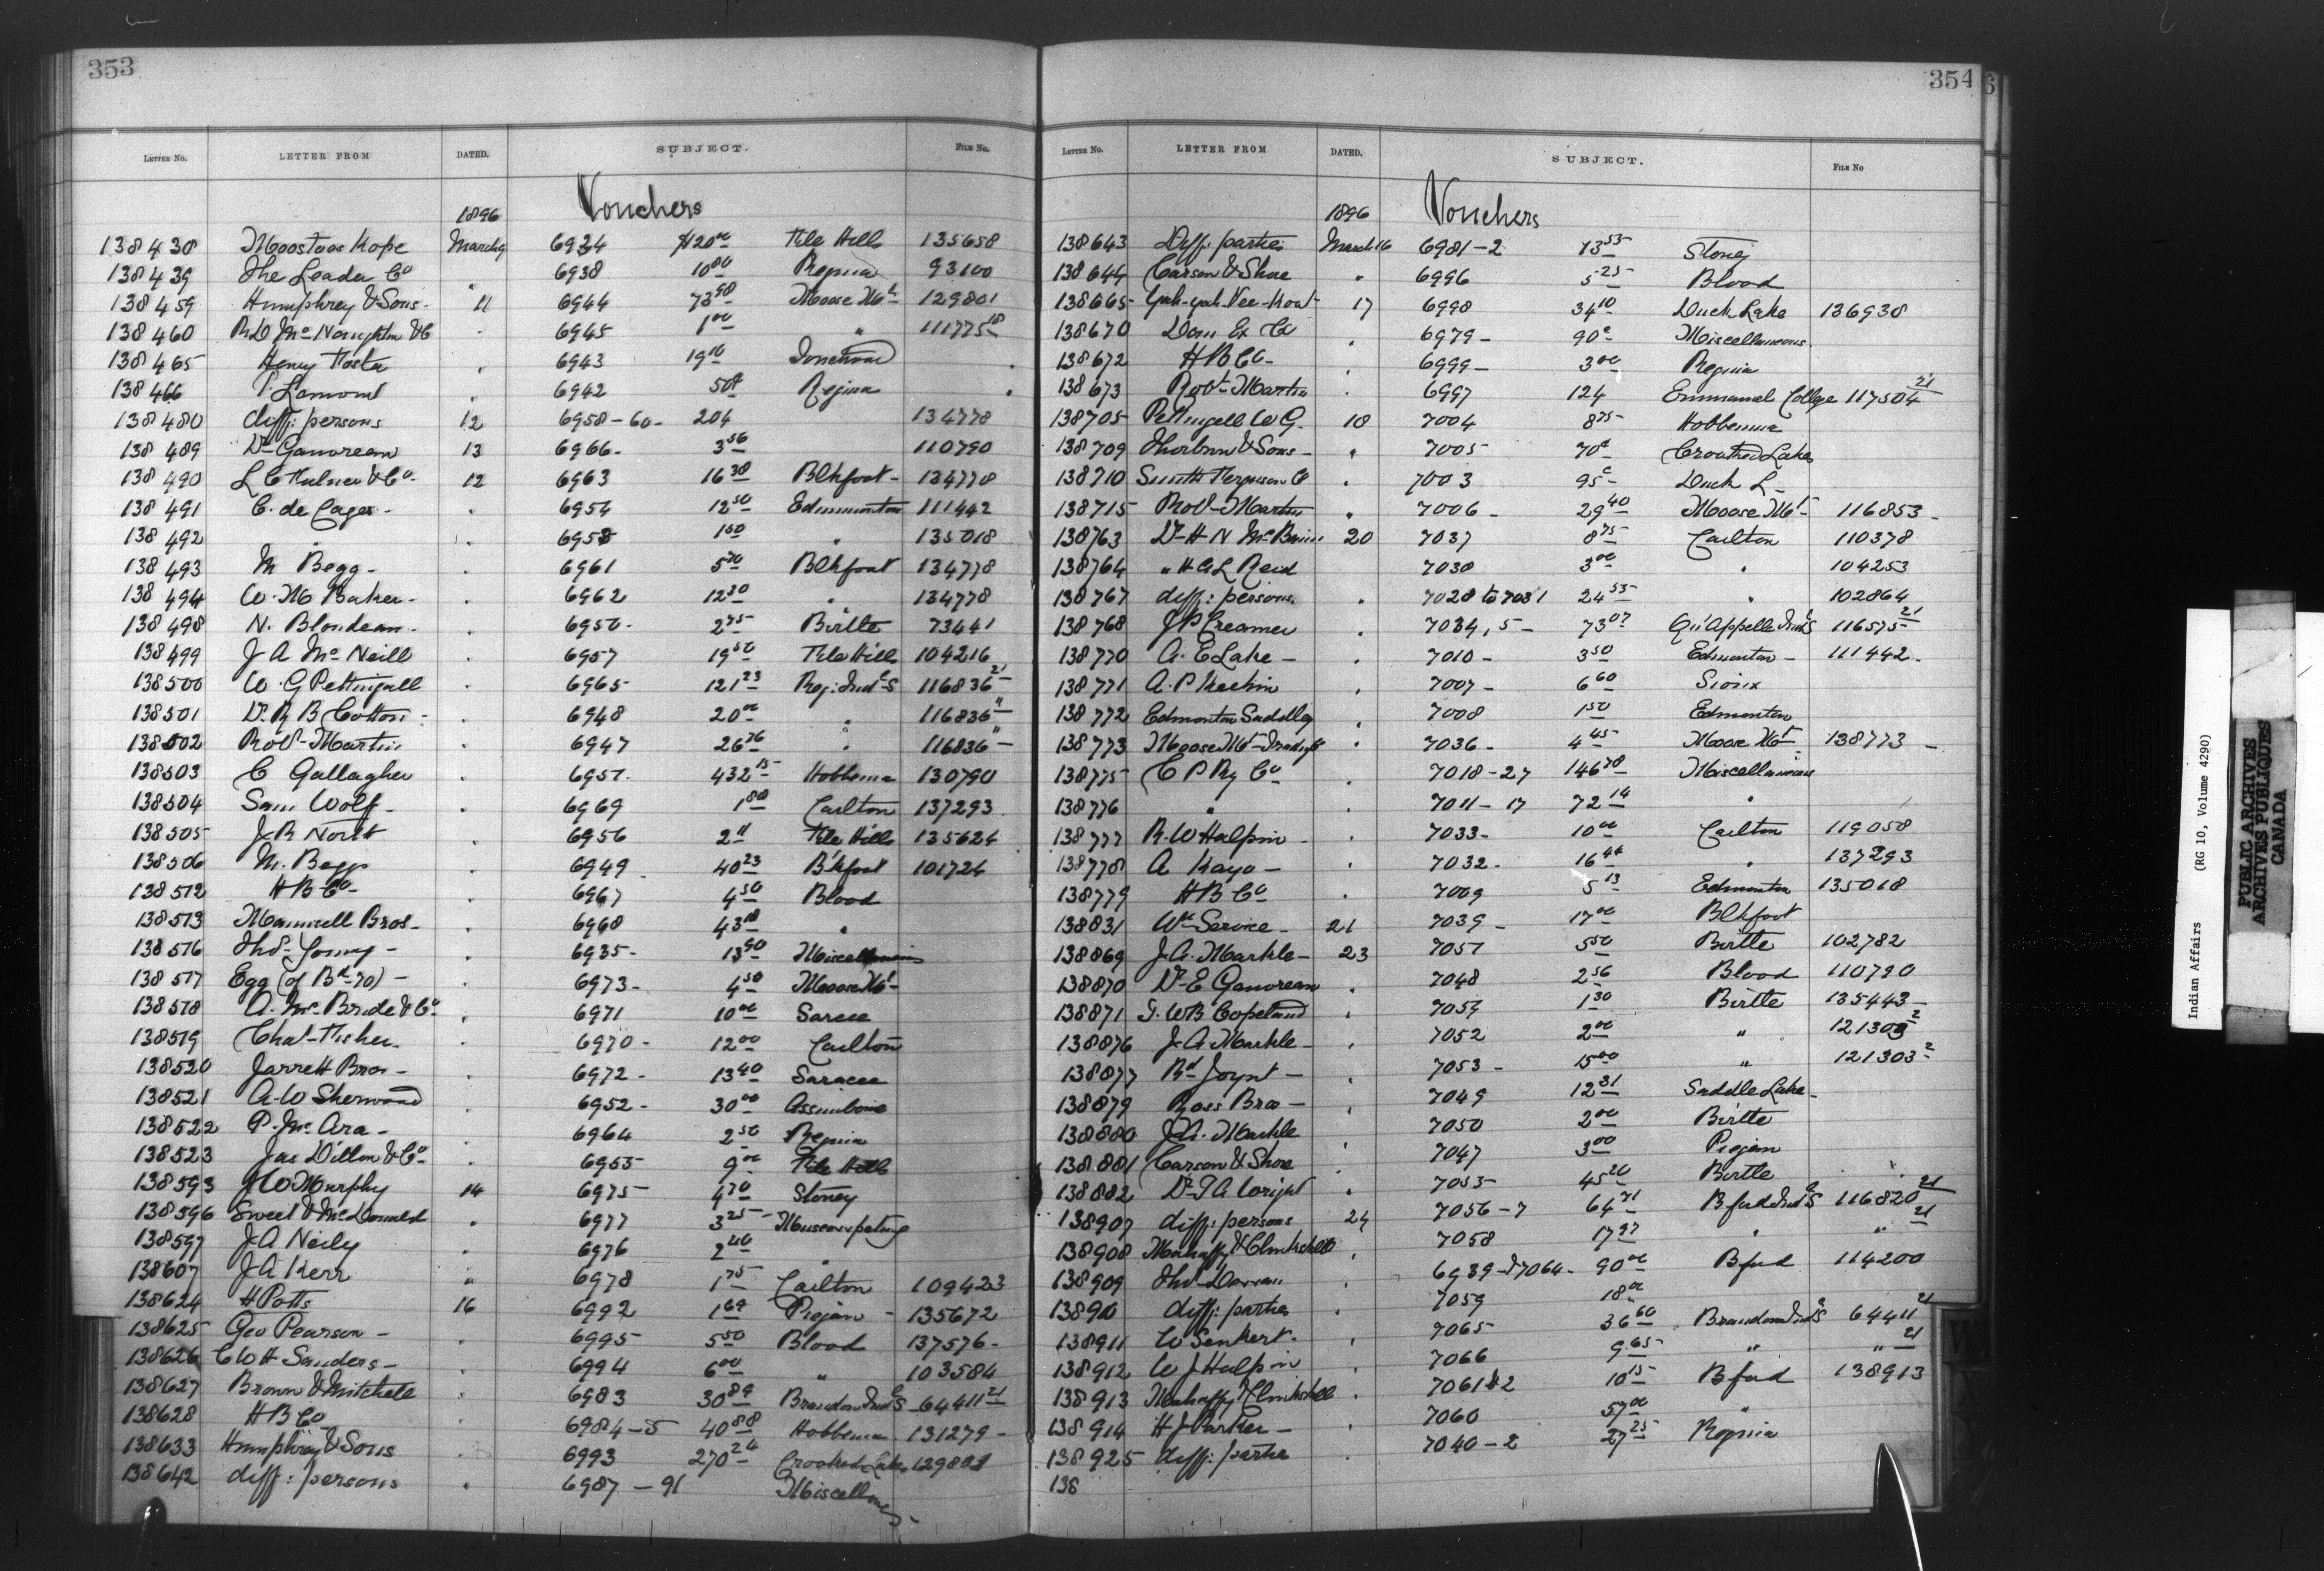 353
LETTER No. LETTER FROM DATED. SUBJECT. FILE No.
1896 Vouchers
138430 Moostoos Kope March 9 6934 $120.00 File Hills 135658
138439 The Leader Co " 6938 10.80 Regina 93100
138459 Humphrey & Sons - 11 6944 73.98 Moose Mt 129801
138460 R D McNaughton & C 6945 1.00 " 11177518
138465 Henry Foster 6943 19.10
138466 P Lamont 6942 50¢ Regina
138480 diff: persons 12 6958-60- 204 134778
138489 Dr Ganvreau 13 6966- 3.56 110790
138490 L C & Co - 12 6963 16.38 Blkfoot - 134778
138491 C. de Cages - 6954 12.50 Edmonton 111442
138492 " 6958 1.50 " 135018
138493 M Begg - 6961 5.70 Blkfoot 134778
138494 W. M Baker - 6962 12.30 " 134778
138498 N. Blondeau - 6950 - 2.75 Birtle 73441
138499 J A McNeill 6957 19.50 File Hills 104216
138500 W. G Pettingall 6965 121.23 Reg: Indl S 116836 21
138501 Dr R B Cotton - 6948 20.00 " 116836 "
138502 Robt Martin 6947 26.76 " 116836 "
138503 C Gallagher 6951. 432.15 Hobbema 130790
138504 Sam Wolf - 6969 1.80 Carlton 137293
138505 J R North 6956 2.11 File Hills 135624
138506 M. Begg 6949 40.23 B'kfoot 101724
138512 H B Co - 6967 4.50 Blood
138513 Maunsell Bros - 6968 43.18 "
138516 Thos Young - 6935 - 13.90 Miscellaneous
138517 Egg (of Bd 70) - 6973 - 4.50 Moose Mt -
138518 A. McBride & Co 6971 10.00 Sarcee
138519 Chas Fisher - 6970 - 12.00 Carlton
138520 Jarrett Bros - 6972 - 13.40 Saracee
138521 A. W Sherwood 6952 - 30.00 Assiniboine
138522 P. McAra - 6964 2.50 Regina
138523 Jas Dillon & Co - 6955 9.00 File Hills
138593 J W Murphy 14 6975 4.70 Stoney
138596 Sweet & McDonald 6977 3.25 Muscowpetung
138597 J A Neily 6976 2.40 "
138607 J A Kerr " 6978 1.75 Carlton 109423
138624 H Potts 16 6992 1.69 Piegan - 135672
138625 Geo Pearson - 6995 5.50 Blood 137576 -
138626 C W H Sanders - 6994 6.00 " 103584
138627 Brown & Mitchell 6983 30.89 Brandon Indl S 64411 21
138628 H B Co 6984-5 40.88 Hobbema 131279 -
138633 Humphrey & Sons 6993 270.24 Crooked Lakes 129801
138642 diff: persons 6987 - 91 Miscellaneous -
354
LETTER No. LETTER FROM DATED. SUBJECT. FILE No
1896 Vouchers
138643 Diff: parties March 16 6981-2 13.53 Stoney
138644 Carson & Shore " 6996 5.25 Blood
138665 17 6998 34.10 Duck Lake 136938
138670 Dom Ex Co 6979 - 90¢ Miscellaneous
138672 H B Co - 6999 - 3.00 Regina
138673 Robt Martin 6997 124 Emmanuel College 117504 21
138705 Pettingell W G. 18 7004 8.75 Hobbema
138709 Thorburn & Sons - " 7005 70¢ Crooked Lakes
138710 Smith Ferguson Co 7003 95¢ Duck L -
138715 Robt Martin 7006 - 29.40 Moose Mt - 116853 -
138763 Dr H N 20 7037 8.75 Carlton 110378
138764 " H A L Reid 7030 3.00 " 104253
138767 diff: persons. 7028 to 7031 24.55 " 102864
138768 J P Creamer 7034, 5 - 73.07 Qu'Appelle Indl S 116575 21
138770 A. E Lake - 7010 - 3.50 Edmonton - 111442 -
138771 A. P Kechin 7007 - 6.60 Sioux
138772 Edmonton Saddlery 7008 1.50 Edmonton
138773 Moose Mt Trading Co 7036 - 4.45 Moose Mt 138773 -
138775 C P Ry Co 7018-27 146.78 Miscellaneous
138776 " 7011-17 72.14 "
138777 R. W Halpin - 7033 - 10.00 Carlton 119058
138778 A Kayo - 7032 - 16.44 " 137293
138779 H B Co 7009 5.13 Edmonton 135018
138831 Wm Service - 21 7039 - 17.00 Blkfoot
138869 J. A. Markle - 23 7051 5.50 Birtle 102782
138870 Dr E Ganvreau 7048 2.56 Blood 110790
138871 S. W B Copeland 7054 1.30 Birtle 135443 -
138876 J A Markle - 7052 2.00 " 121303 2
138877 Rd Joynt - 7053 - 15.00 " 121303 2
138879 Ross Bros - 7049 12.31 Saddle Lake -
138880 J. A. Markle 7050 2.00 Birtle
138881 Carson & Shore 7047 3.00 Piegan
138882 Dr T A Wright 7055 45.20 Birtle
138907 diff: persons 24 7056-7 64.71 Bford Indl S 116820 21
138908 Mahaffy & Clinkskill 7058 17.97 " " 21
138909 Thos Dewan 6939 & 7064 - 90.00 Bford 114200
138910 diff: parties 7059 18.00
138911 W Senkert - 7065 36.60 Brandon Indl S 64411 21
138912 W J Halpin 7066 9.65 " " 21
138913 Mahaffy & Clinkskill 7061 & 2 10.15 Bford 138913
138914 H J Parker - 7060 57.00 "
138925 diff: parties 7040-2 27.25 Regina
138
Indian Affairs (RG 10, Volume 4290)
PUBLIC ARCHIVES
ARCHIVES PUBLIQUES
CANADA